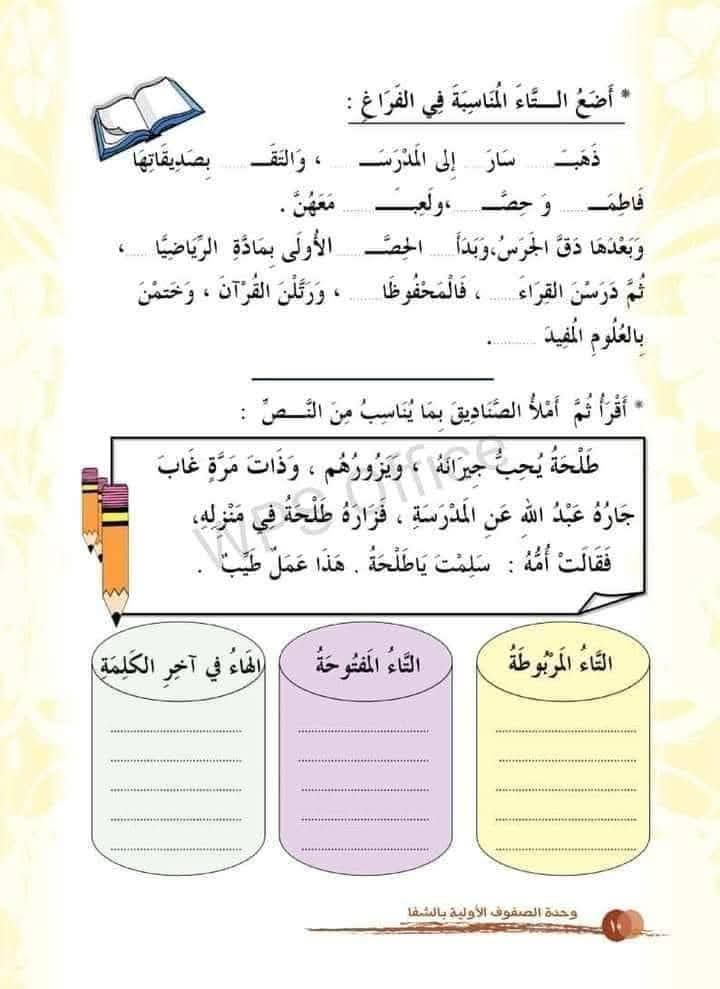 * أَضَعُ الـــتَّاءَ المُنَاسِبَةَ فِي الفَرَاغِ :
ذَهَبَـ...... سَارَ.... إِلى المَدْرَسَـ........ ، وَالتَقَـ...... بِصَدِيقَاتِهَا
فَاطِمَـ...... وَ حِصَّـ......،ولَعِبَـ........ مَعَهُنَّ .
وَبَعْدَهَا دَقَّ الجَرَسُ،وَبَدَأَ...... الحِصَّـ...... الأُولَى بِمَادَّةِ الرِّيَاضِيَّا....... ،
ثُمَّ دَرَسْنَ القِرَاءَ......... ، فَالْمَحْفُوظَا........ ، وَرَتَّلْنَ القُرْآنَ ، وَخَتَمْنَ
بِالعُلُومِ المُفِيدَ ...........
* أَقْرَأُ ثُمَّ أَمْلأُ الصَّنَادِيقَ بِمَا يُنَاسِبُ مِنَ النَّـــصِّ :
طَلْحَةُ يُحِبُّ جِيرَانَهُ ، وَيَزُورُهُم ، وَذَاتَ مَرَّةٍ غَابَ
جَارُهُ عَبْدُ اللهِ عَنِ المَدْرَسَةِ ، فَزَارَهُ طَلْحَةُ فِي مَنْزِلِهِ،
فَقَالَتْ أُمُّهُ : سَلِمْتَ يَاطَلْحَةُ . هَذَا عَمَلٌ طَيِّبٌ .
WPS Office
التَّاءُ المَرْبُوطَةُ
التَّاءُ المَفتُوحَةُ
الهَاءُ في آخِرِ الكَلِمَةِ
وحدة الصفوف الأولية بالشفا
١٠